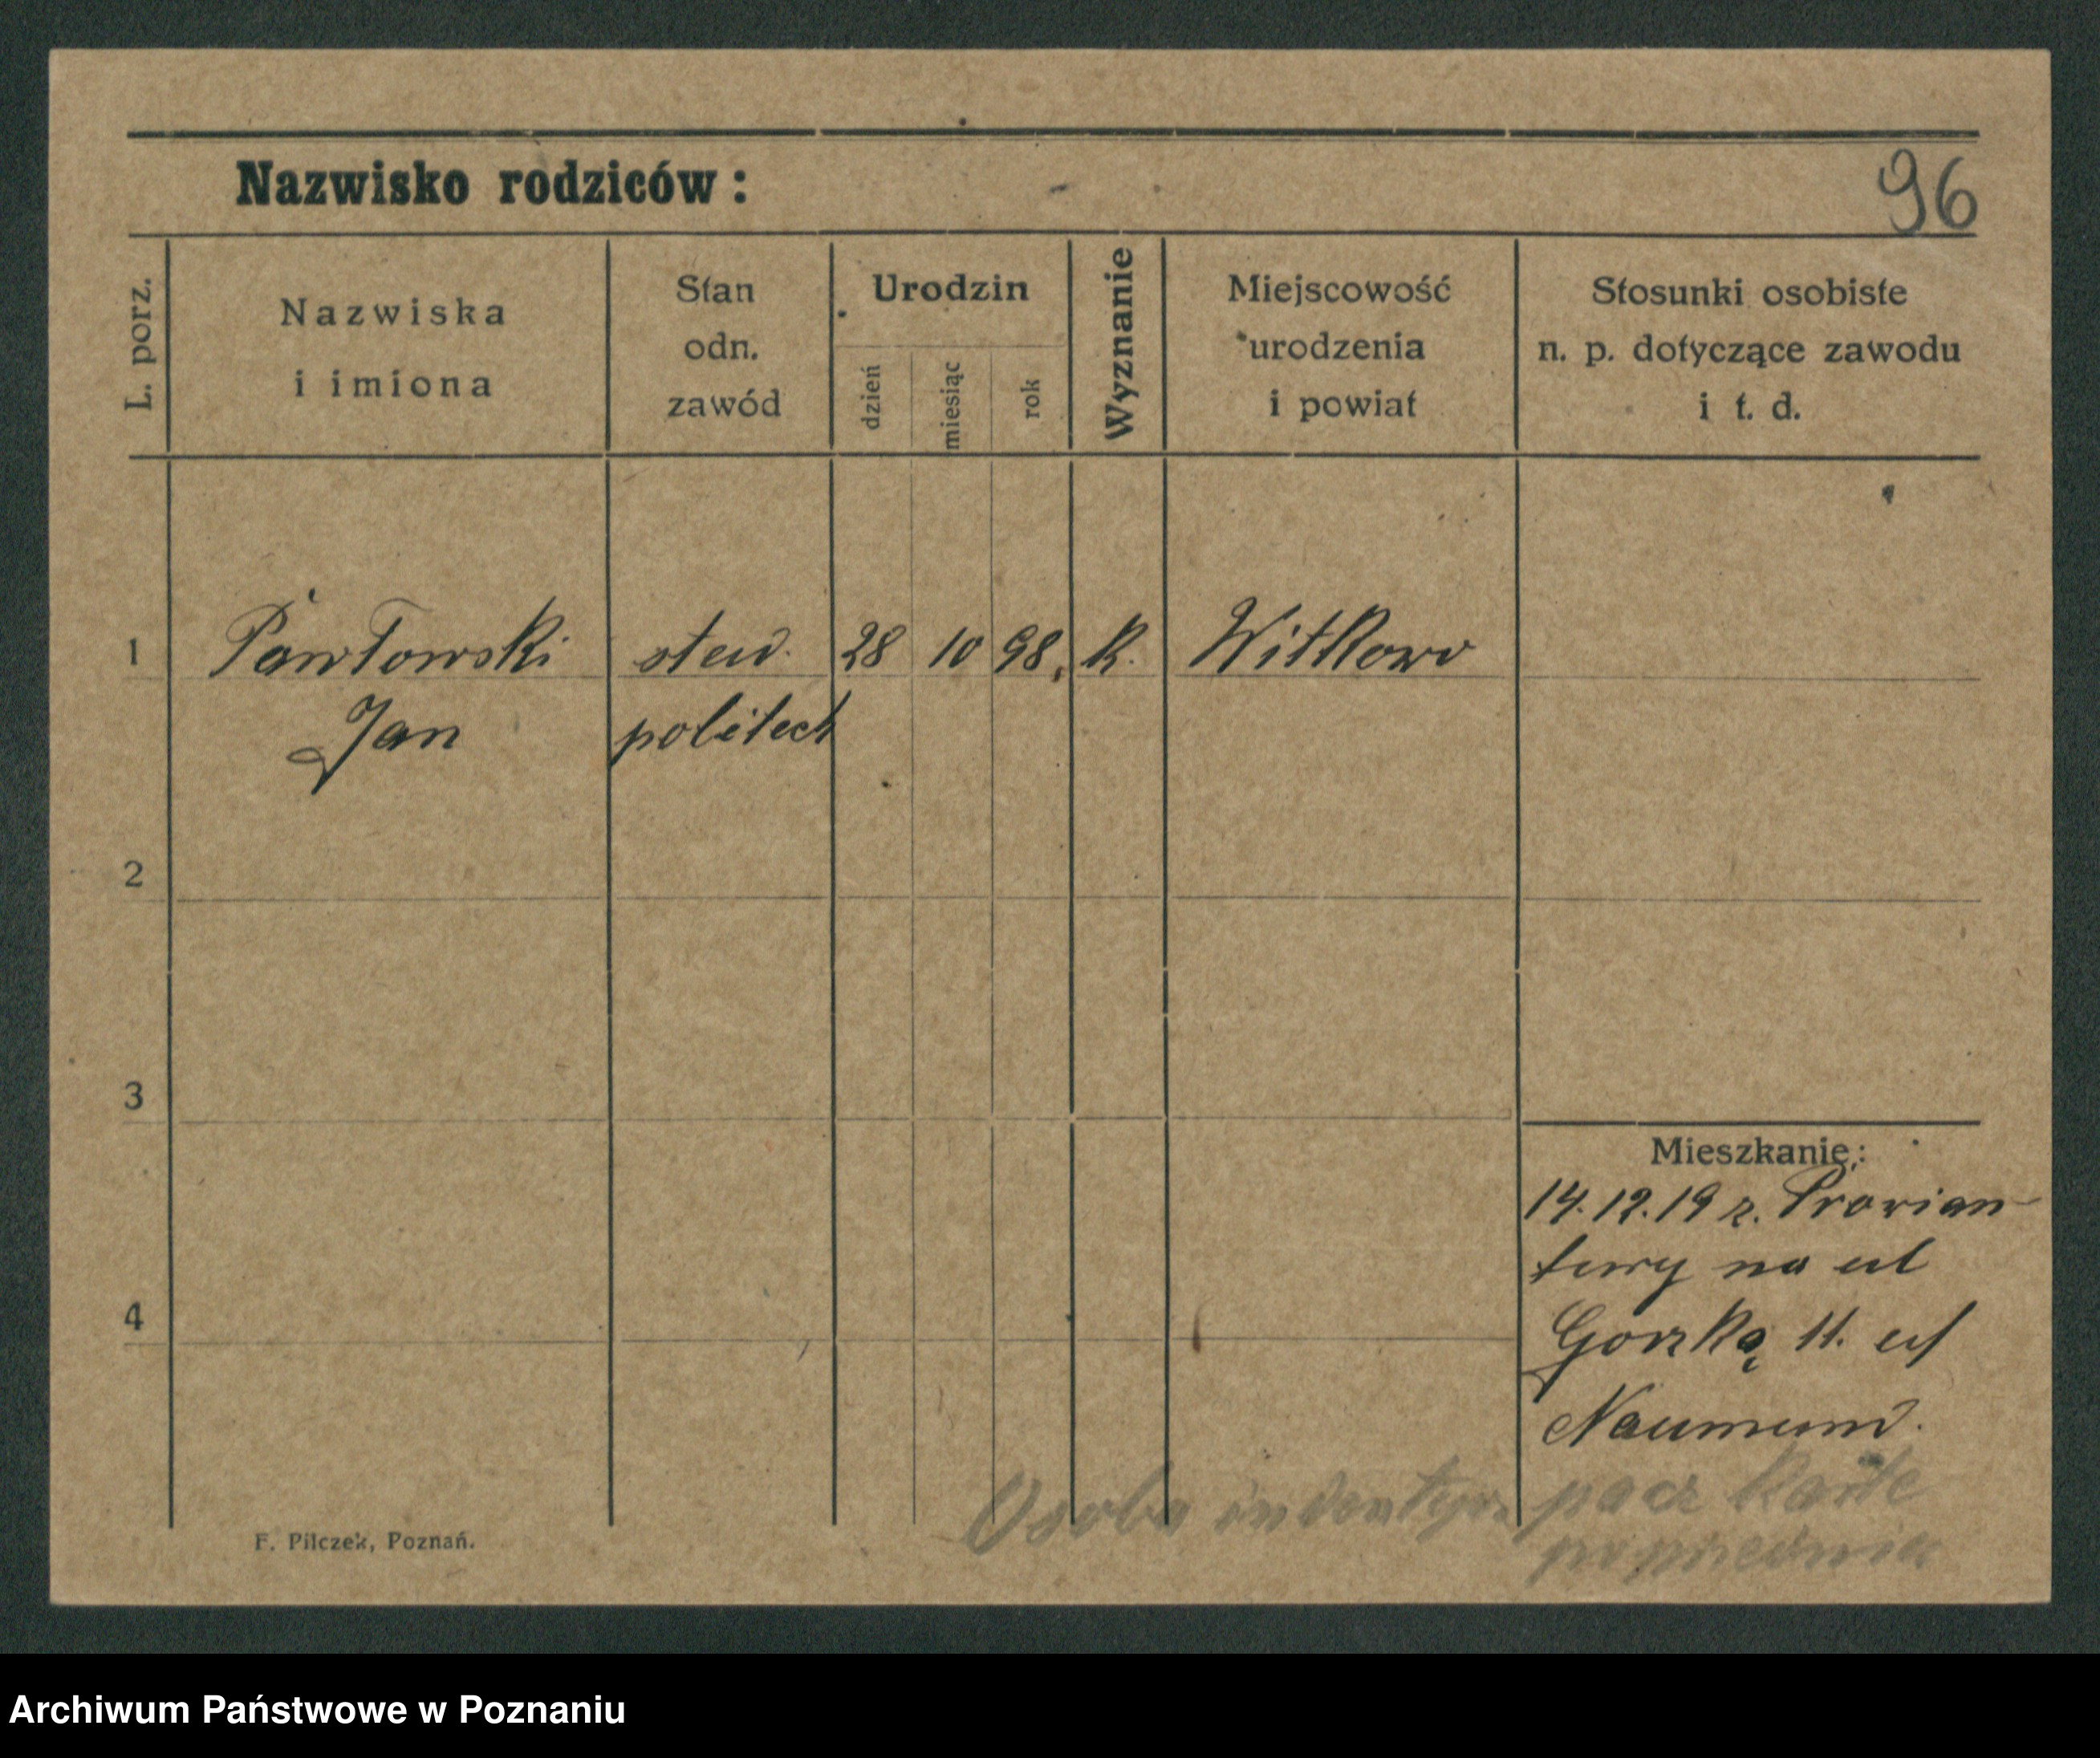 96
Nazwisko rodziców:
L. porz.
Nazwiska
i imiona
Stan
odn.
zawód
Urodzin
dzień
miesiąc
rok
Wyznanie
Miejscowość
urodzenia
i powiat
Stosunki osobiste
n. p. dotyczące zawodu
i t. d.
1 Pawłowski stud. 28 10 98. k. Witkowo
Jan politech
2
3
4
Mieszkanie:
14.12.19 r. Prowian-
towy na ul
Gorzką 11. u/
Naumund.
Osoba indentyczn patrz kartę
poprzednia
F. Pilczek, Poznań.
Archiwum Państwowe w Poznaniu